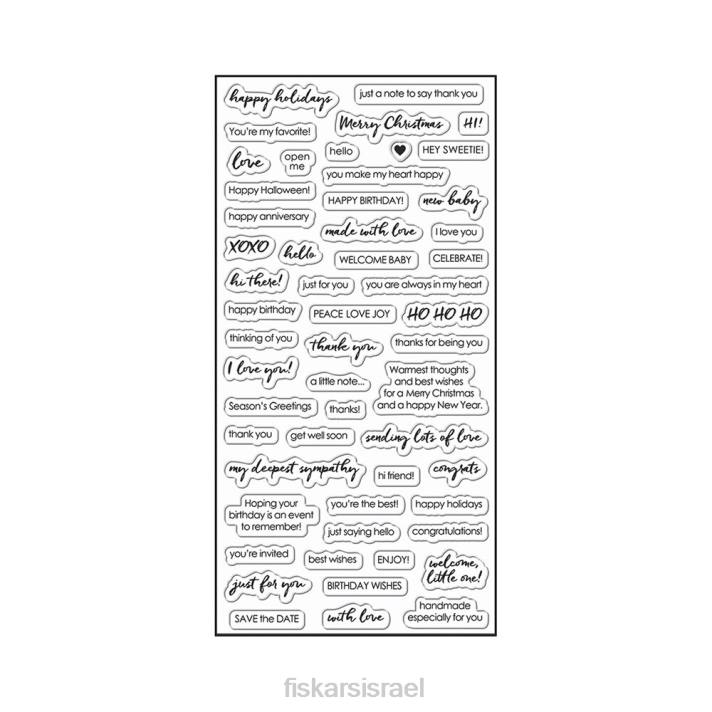 happy holidays
just a note to say thank you
Merry Christmas
HI!
You're my favorite!
hello
HEY SWEETIE!
love
open
me
you make my heart happy
Happy Halloween!
HAPPY BIRTHDAY!
new baby
happy anniversary
made with love
I love you
XOXO
hello
WELCOME BABY
CELEBRATE!
hi there!
just for you
you are always in my heart
happy birthday
PEACE LOVE JOY
HO HO HO
thinking of you
thank you
thanks for being you
I love you!
a little note...
Warmest thoughts
and best wishes
for a Merry Christmas
and a happy New Year.
Season's Greetings
thanks!
thank you
get well soon
sending lots of love
my deepest sympathy
hi friend!
congrats
Hoping your
birthday is an event
to remember!
you're the best!
happy holidays
just saying hello
congratulations!
you're invited
best wishes
ENJOY!
welcome,
little one!
just for you
BIRTHDAY WISHES
SAVE the DATE
with love
handmade
especially for you
fiskarsisrael